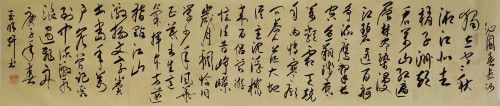 沁园春长沙
独立寒秋
湘江北去
橘子洲头
看万山红遍
层林尽染漫
江碧透百舸
争流鹰击长
空鱼翔浅底
万类霜天竞
自由怅寥廓
问苍茫大地
谁主沉浮携
来百侣曾游
忆往昔峥嵘
岁月稠恰同
学少年风华
正茂书生意
气挥斥方遒
指点江山
激扬文字粪
土当年万
户侯曾记否
到中流击水
浪遏飞舟
庚子年春